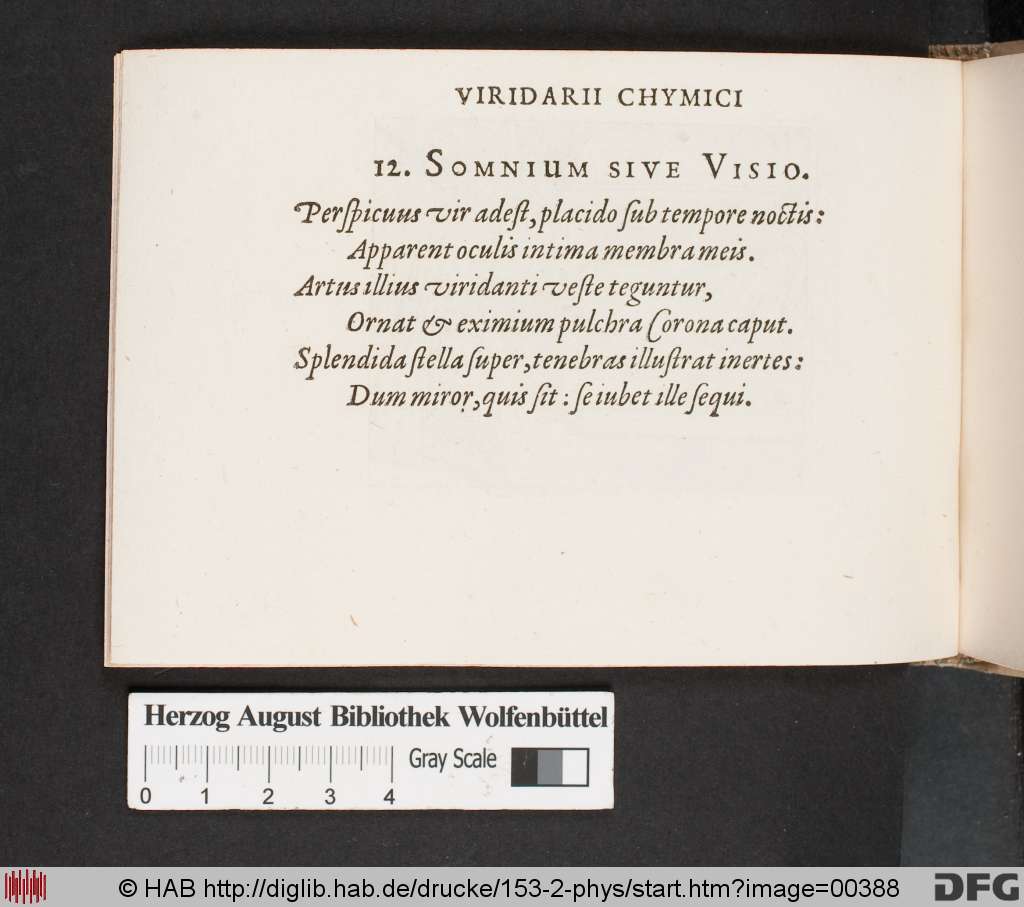 VIRIDARII CHYMICI
12. SOMNIUM SIVE VISIO.
Perſpicuus vir adeſt, placido ſub tempore noctis:
Apparent oculis intima membra meis.
Artus illius viridanti veſte teguntur,
Ornat & eximium pulchra Corona caput.
Splendida ſtella ſuper, tenebras illuſtrat inertes:
Dum miror, quis ſit: ſe iubet ille ſequi.
Herzog August Bibliothek Wolfenbüttel
Gray Scale
0 1 2 3 4
© HAB http://diglib.hab.de/drucke/153-2-phys/start.htm?image=00388
DFG